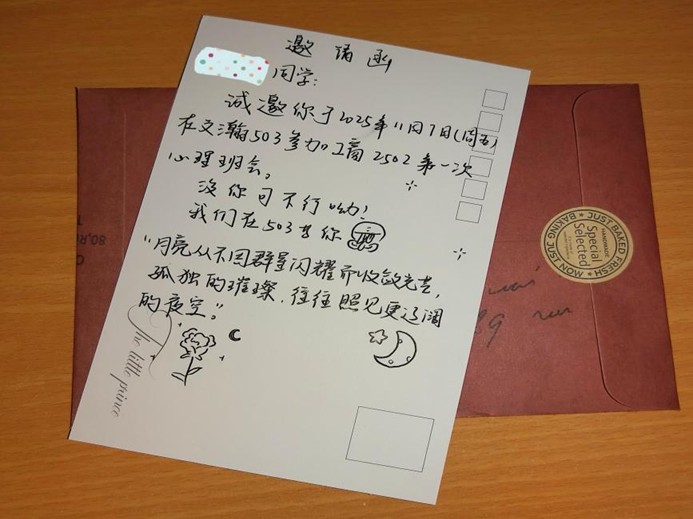 邀请函
同学:
诚邀你于2025年11月7日(周五)
在文瀚503参加工商2502第一次
心理班会。
没你可不行呦!
我们在503等你
"月亮从不因群星闪耀而收敛光芒,
孤独的璀璨,往往照见更辽阔
的夜空。"
The little prince
JUST BAKED FRESH
BAKING JUST NOW
HANDMADE
Special
Selected
80,R